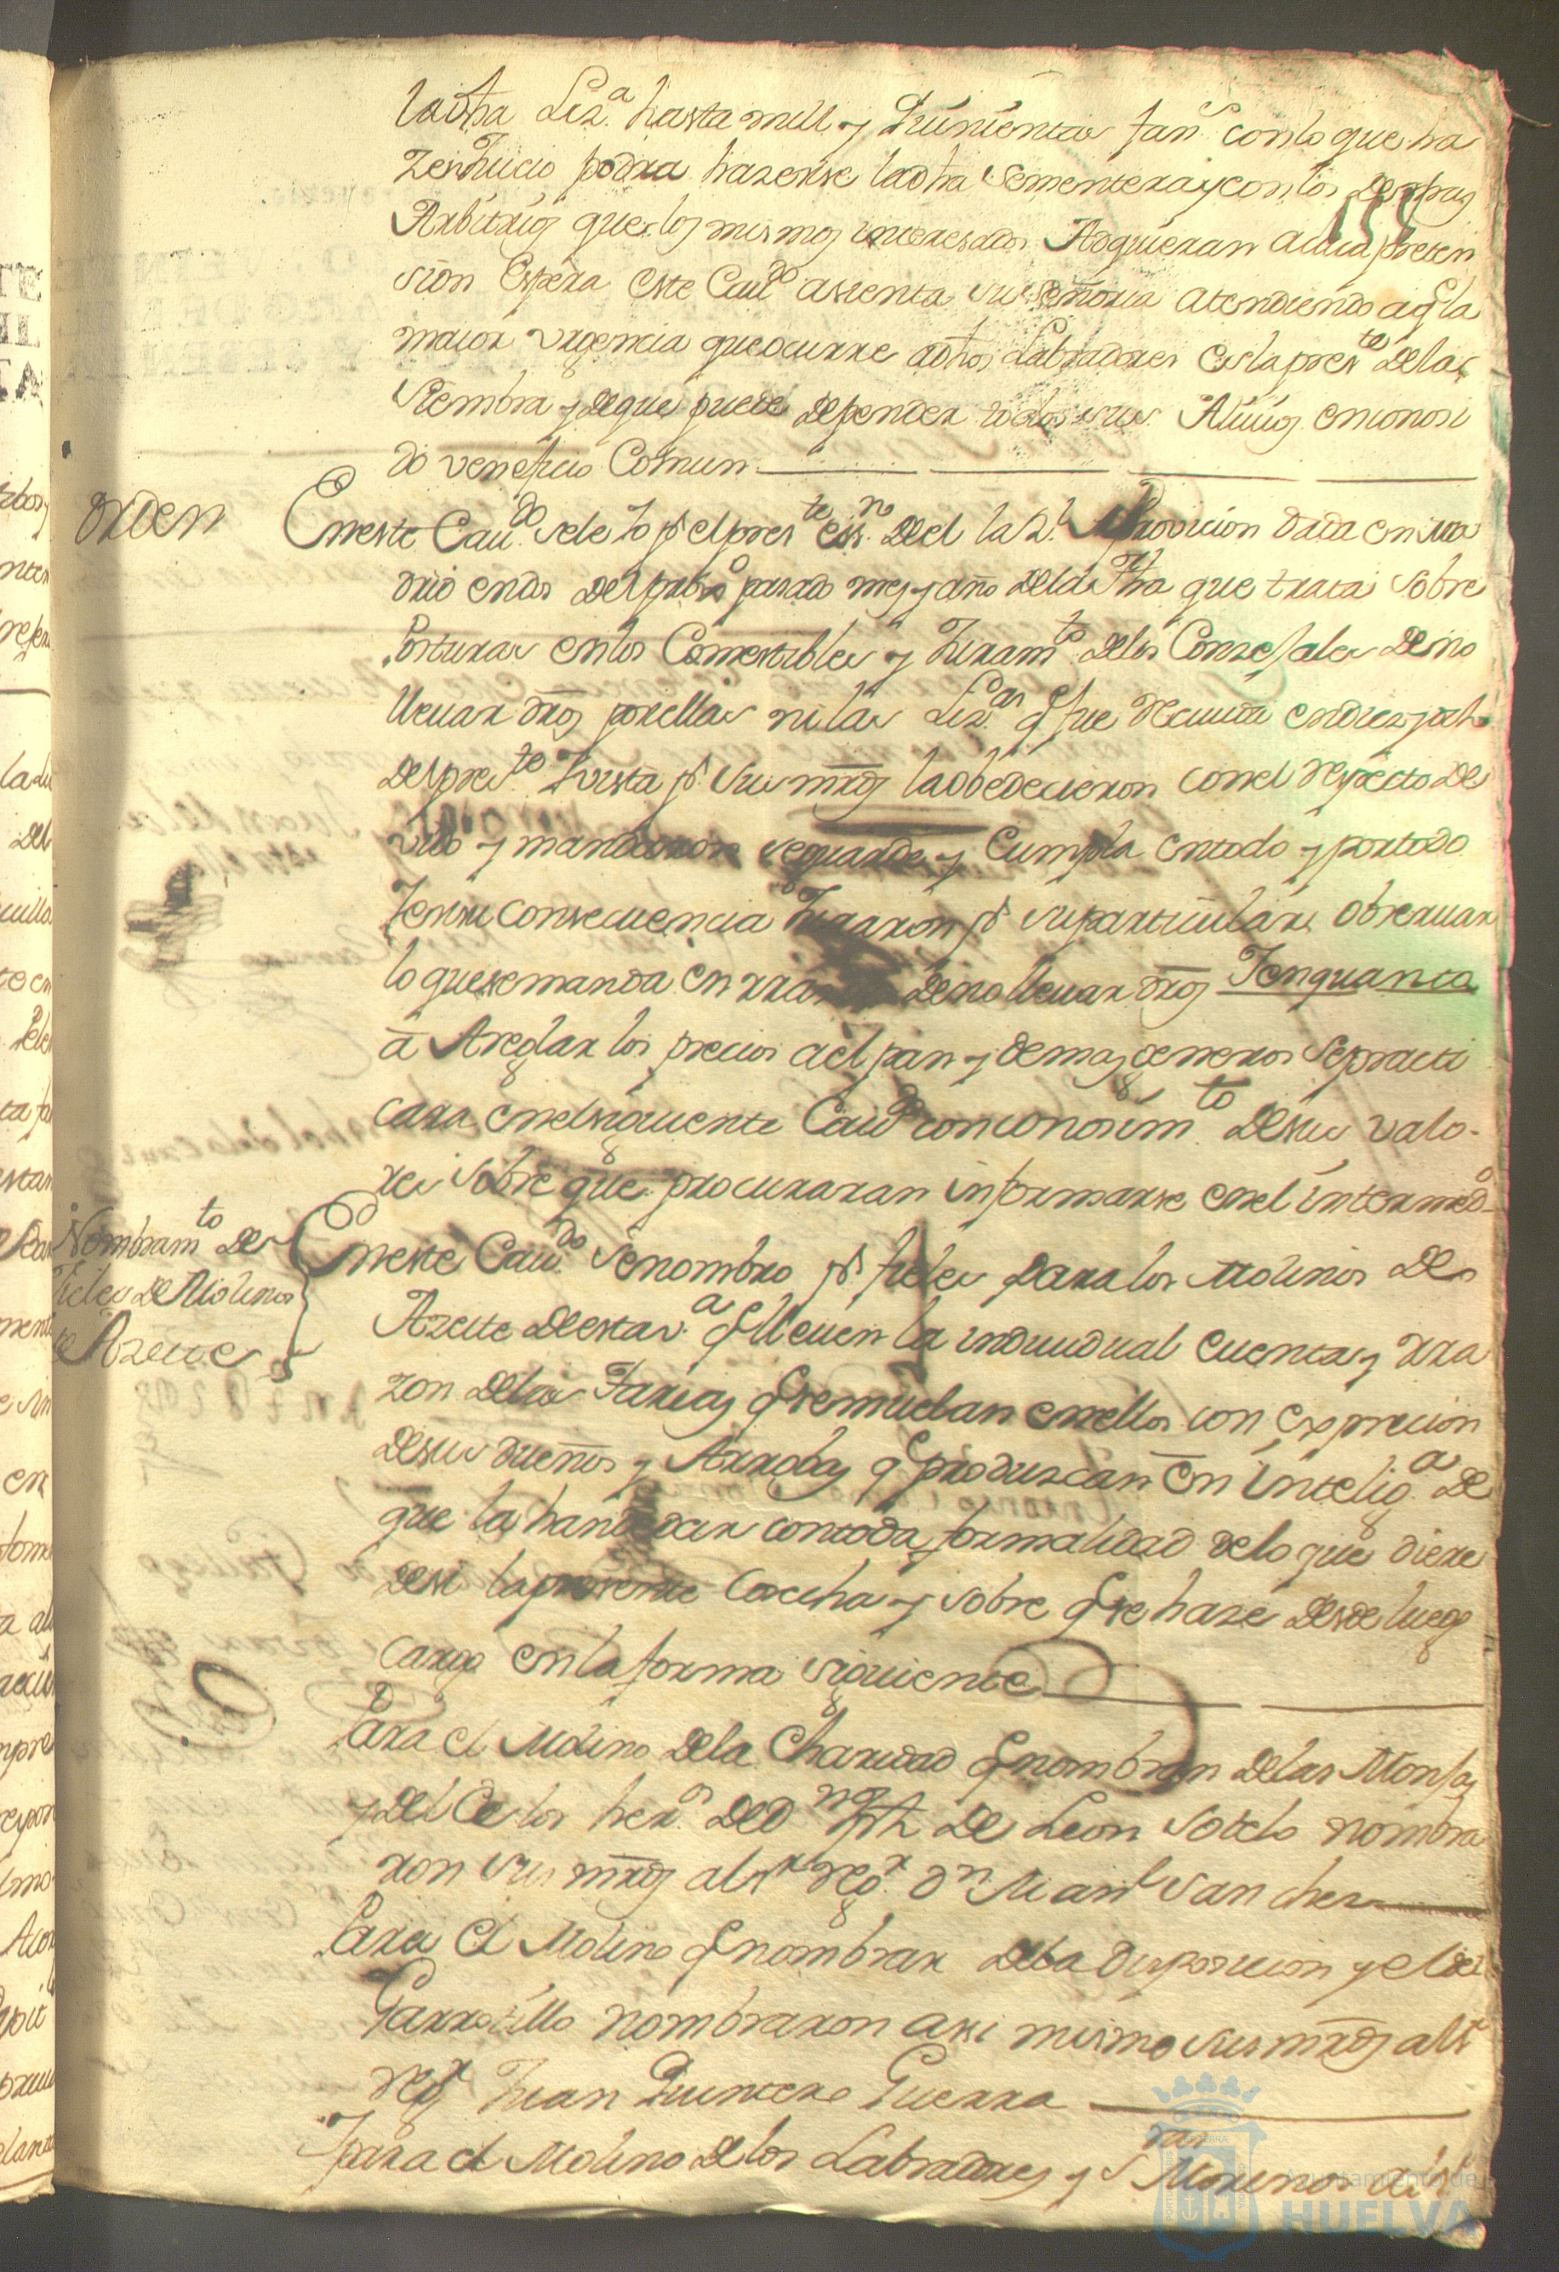 la dha Liz.ª hasta mill y Quinientas fan.s con lo que ha
podra hazerse la dha sementera y con los demas
Arbitrios que los mismos interesados Adquieran a cuia preten
sion Espera este Cau.do assienta su señoria atendiendo a q la
maior vrgencia que ocurre a dhos Labradores es la pres.te de la
siembra y de que puede depender todos sus Aliuios en conosi
do veneficio Comun
orden
En este Cau.do se leyo pr el pres.te es.no de el la R.l Provicion dada en Ma
drid en dos del pasado mes y año de la fha que trata sobre
Posturas en los Comestibles y Juram.to de los Consejales de no
lleuar dros por ellas ni las Liz.as q fue Reciuida en diez y ocho
del pres.te Y vista pr sus mrds la obedecieron con el respecto de
vido y mandaron se guarde y Cumpla en todo y por todo
Y en su consecuencia Juraron pr su particular obseruar
lo que se manda en rra de no lleuar dros Y en quanto
a Areglar los precios a el pan y demas generos se practi
cara en el siguiente Cau.do con conosim.to de sus valo-
res sobre que procuraran informarse en el intermed.o
Nombram.to de
fieles de Molinos
de Azeite
En este Cau.do se nombro pr fieles para los Molinos de
Azeite de esta v.ª q lleuen la indiuidual cuenta y rra
zon de las Tareas q se muelan en ellos con exprecion
de sus dueños y Arrobas q produzcan en intelig.ª de
que la han de dar con toda formalidad de lo que diere
de si la presente Cocecha y sobre q se haze desde luego
cargo en la forma siguiente
Para el Molino de la Charidad q nombran de las Monjas
y del de los her.s de D.n de Leon Sotelo nombra
ron sus mrds al s.r reg.r D.n Man.l Sanches
Para el Molino q nombran de la Disposicion y el del
Garrotillo nombraron assi mismo sus mrds al s.r
reg.r Juan Quintero Guerra
Y para el Molino de los Labradores y Moreno al s.r
Ayuntamiento de
HUELVA